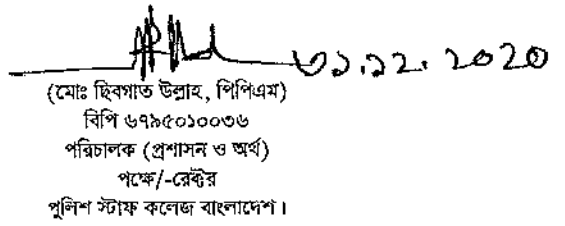 ৩১.১২.2020
(মোঃ ছিবগাত উল্লাহ, পিপিএম)
বিপি ৬৭৯৫০১০০৩৬
পরিচালক (প্রশাসন ও অর্থ)
পক্ষে/-রেক্টর
পুলিশ স্টাফ কলেজ বাংলাদেশ।